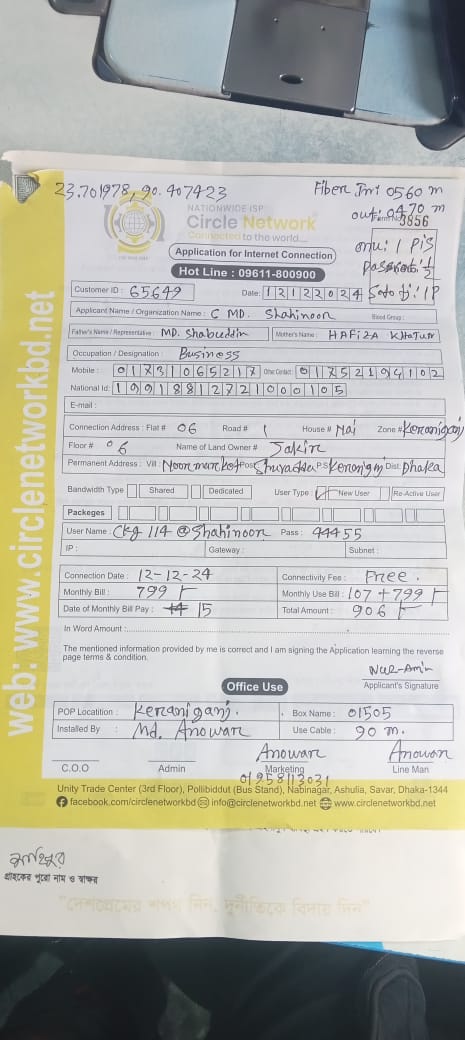 23.701978, 90.407423
Fiber Int 0560 m
out: 0470 m
NATIONWIDE ISP
Circle Network
Connected to the world....
3856
onu: 1 Pis
Application for Internet Connection
Hot Line : 09611-800900
Customer ID : 65649 Date: 12122024
Applicant Name / Organization Name : C MD. Shahinoor Blood Group :
Father's Name / Representative : MD. Shabuddin Mother's Name : HAFIZA KHATUN
Occupation / Designation : Business
Mobile : 01731065217 Othe Contact : 01752194102
National Id: 19918812721000105
E-mail :
Connection Address : Flat # 06 Road # 1 House # Nai Zone # Keraniganj
Floor # 06 Name of Land Owner # Jakir
Permanent Address : Vill : Noor market Post Shuvadda P.S Keranigonj Dist: Dhaka
Bandwidth Type Shared Dedicated User Type : New User Re-Active User
Packeges
User Name : Ckg 114 @Shahinoor Pass : 44455
IP : Gateway : Subnet :
Connection Date : 12-12-24 Connectivity Fee : Free.
Monthly Bill : 799 Monthly Use Bill : 107 + 799
Date of Monthly Bill Pay : 15 Total Amount : 906
In Word Amount :
The mentioned information provided by me is correct and I am signing the Application learning the reverse
page terms & condition.
Nur-Amin
Applicant's Signature
Office Use
POP Locatition : Keraniganj. Box Name : 01505
Installed By : Md. Anowar Use Cable : 90 m.
Anowar Anowar
C.O.O Admin Marketing Line Man
01958113031
Unity Trade Center (3rd Floor), Pollibiddut (Bus Stand), Nabinagar, Ashulia, Savar, Dhaka-1344
facebook.com/circlenetworkbd info@circlenetworkbd.net www.circlenetworkbd.net
web: www.circlenetworkbd.net
গ্রাহকের পুরো নাম ও স্বাক্ষর
"দেশপ্রেমের শপথ নিন, দুর্নীতিকে বিদায় দিন"